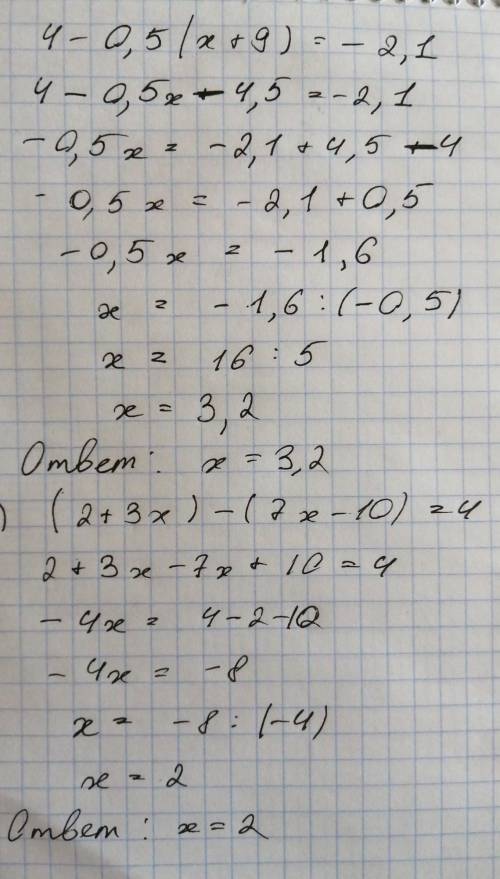 4 - 0,5 (x + 9) = - 2,1
4 - 0,5x - 4,5 = - 2,1
- 0,5x = - 2,1 + 4,5 - 4
- 0,5x = - 2,1 + 0,5
- 0,5x = - 1,6
x = - 1,6 : (- 0,5)
x = 16 : 5
x = 3,2
Ответ: x = 3,2
) (2 + 3x) - (7x - 10) = 4
2 + 3x - 7x + 10 = 4
- 4x = 4 - 2 - 10
- 4x = - 8
x = - 8 : (- 4)
x = 2
Ответ: x = 2